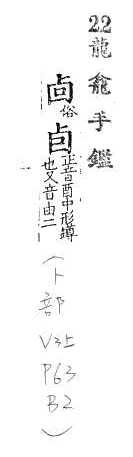 22龍龕手鑑
卣俗卣正音酉中形罇也又音由二
(卜部 V35 P63 B2)